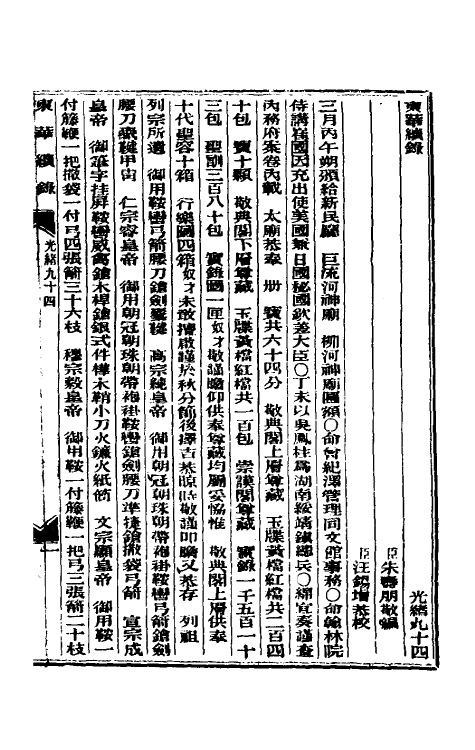 東華續錄 光緒九十四
臣朱壽朋敬編
臣汪錫增恭校
三月丙午朔頒給新民廳 巨流河神廟 柳河神廟匾額○命曾紀澤管理同文館事務○命翰林院
侍講崔國因充出使美國兼日國秘國欽差大臣○丁未以吳鳳柱爲湖南綏靖鎮總兵○綿宜奏謹查
內務府案卷內載 太廟恭奉 册 寶共六十四分 敬典閣上層尊藏 玉牒黃檔紅檔共二百四
十包 寶十顆 敬典閣下層尊藏 玉牒黃檔紅檔共一百包 崇謨閣尊藏 實錄一千五百一十
三包 聖訓三百八十包 實錄圖一匣奴才敬謹瞻仰供奉尊藏均屬妥協惟 敬典閣上層供奉
十代聖容十箱 行樂圖四箱奴才未敢擅啟謹於秋分節後擇吉恭晾時敬謹叩瞻又恭存 列祖
列宗所遺 御用鞍轡弓箭腰刀鎗劍櫜鞬 高宗純皇帝 御用朝冠朝珠朝帶袍褂鞍轡弓箭鎗劍
腰刀櫜鞬甲冑 仁宗睿皇帝 御用朝冠朝珠朝帶袍褂鞍轡鎗劍腰刀準捷鎗撒袋弓箭 宣宗成
皇帝 御筆字挂屏鞍轡威禽鎗木桿鎗銀式件樺木鞘小刀火鐮火紙筒 文宗顯皇帝 御用鞍一
付籐鞭一把撒袋一付弓四張箭三十六枝 穆宗毅皇帝 御用鞍一付籐鞭一把弓三張箭二十枝
東華續錄 光緒九十四 一